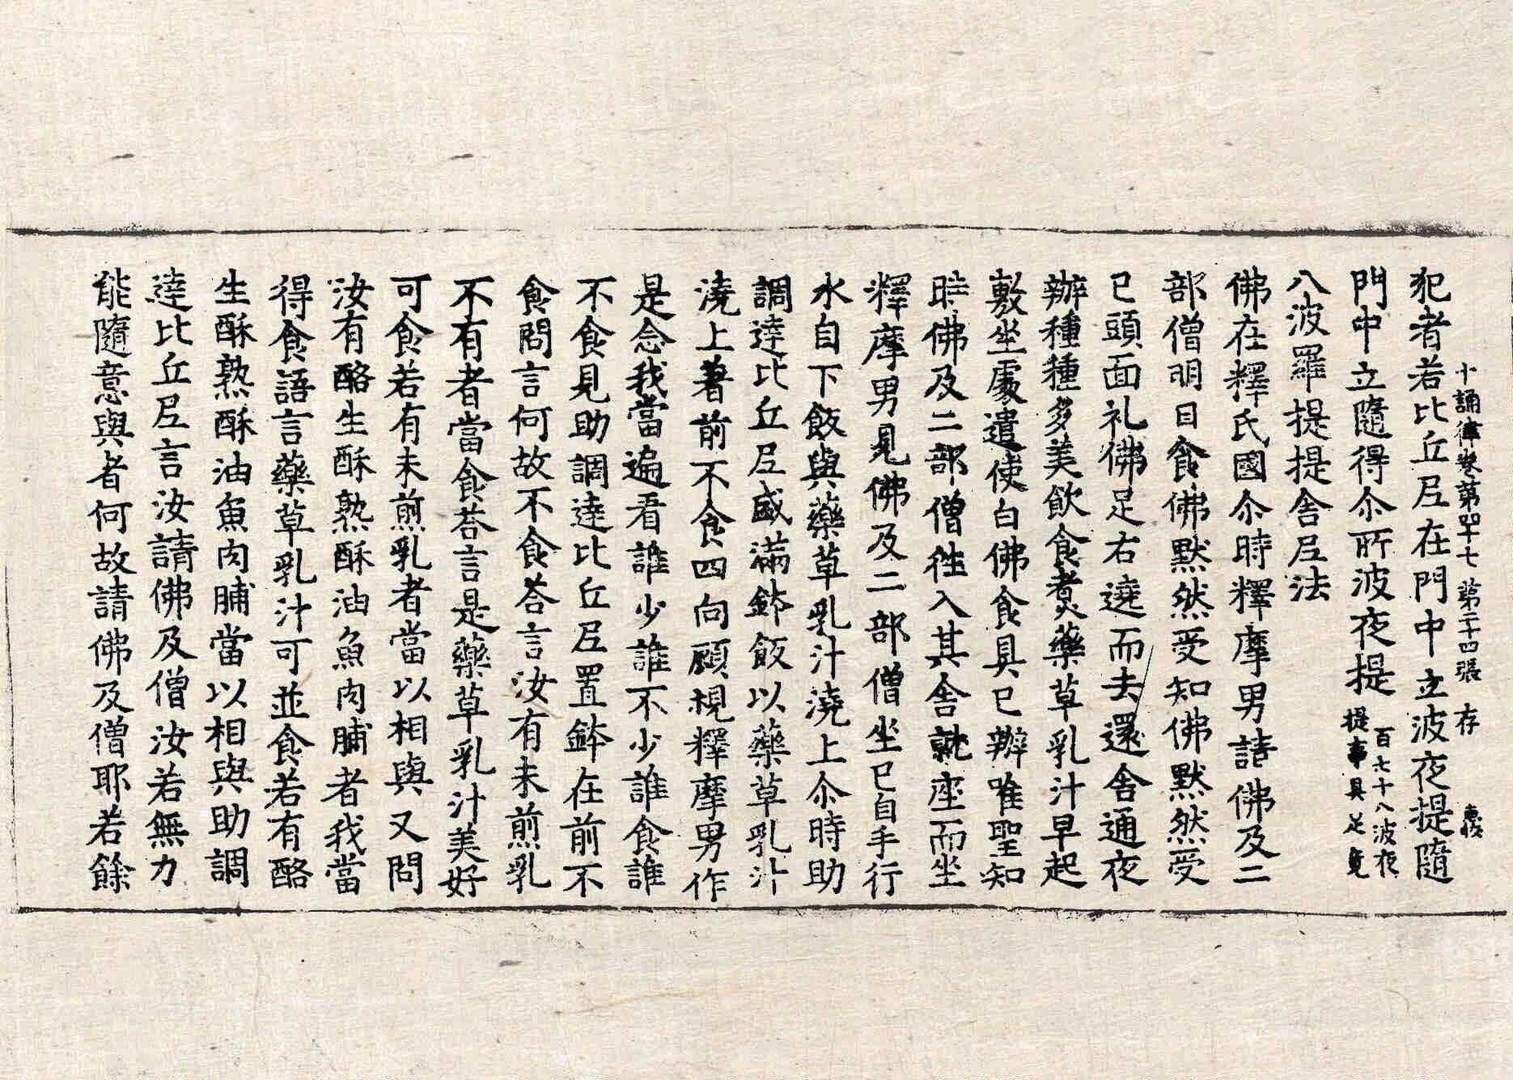 十誦律卷第四十七 第二十四張 存
犯者若比丘尼在門中立波夜提隨
門中立隨得尒所波夜提 百七十八波夜提事具足竟
八波羅提提舍尼法
佛在釋氏國尒時釋摩男請佛及二
部僧明日食佛默然受知佛默然受
已頭面礼佛足右遶而去還舍通夜
辦種種多美飲食煑藥草乳汁早起
敷坐處遣使白佛食具已辦唯聖知
時佛及二部僧徃入其舍就座而坐
釋摩男見佛及二部僧坐已自手行
水自下飯與藥草乳汁澆上尒時助
調達比丘尼盛滿鉢飯以藥草乳汁
澆上著前不食四向顧視釋摩男作
是念我當遍看誰少誰不少誰食誰
不食見助調達比丘尼置鉢在前不
食問言何故不食荅言汝有未煎乳
不有者當食荅言是藥草乳汁美好
可食若有未煎乳者當以相與又問
汝有酪生酥熟酥油魚肉脯者我當
得食語言藥草乳汁可並食若有酪
生酥熟酥油魚肉脯當以相與助調
達比丘尼言汝請佛及僧汝若無力
能隨意與者何故請佛及僧耶若餘